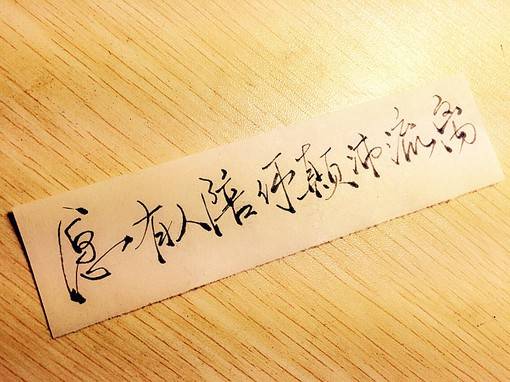 愿有人陪伴颠沛流离